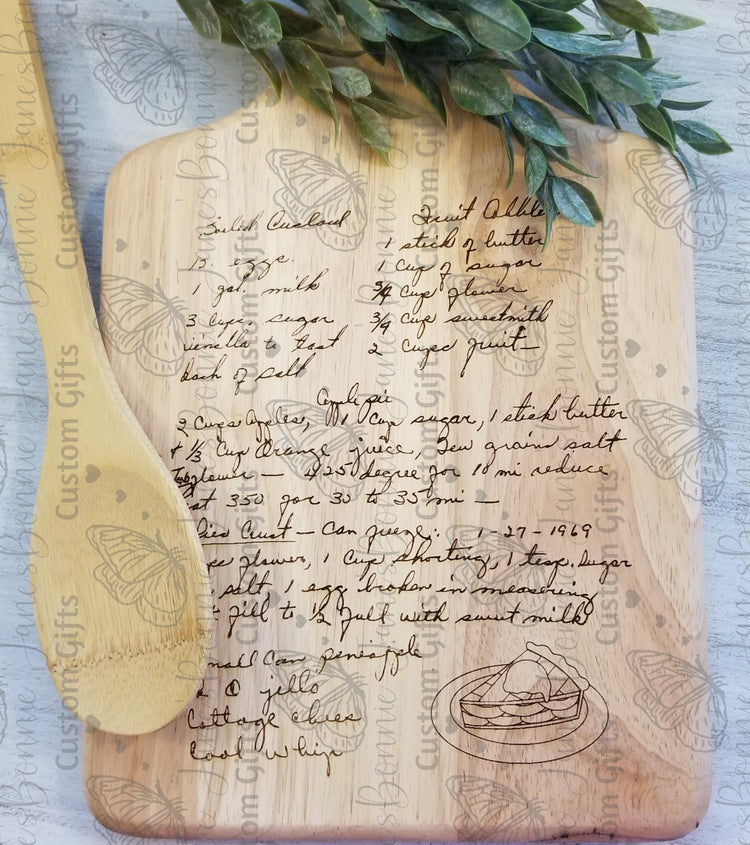 Boiled Custard
13 eggs.
1 gal. milk
3 cups. sugar
vienella to tast
dash of salt
Fruit Cobble
1 stick of butter
1 cup of sugar
3/4 cup flower
3/4 cup sweetmilk
2 cups fruit —
Apple pie
2 Cups apples, 1 Cup sugar, 1 stick butter
+ 1/3 Cup Orange juice, Few grains salt
flower — 425 degree for 10 mi reduce
at 350 for 30 to 35 mi —
Pies Crust — Can freeze: 1-27-1969
flower, 1 Cup shorting, 1 tesp. sugar
salt 1 egg broken in measering
fill to 1/2 full with sweet milk
small Can pineapple
jello
Cottage chees
Cool whip
JanesBonnie
Custom Gifts